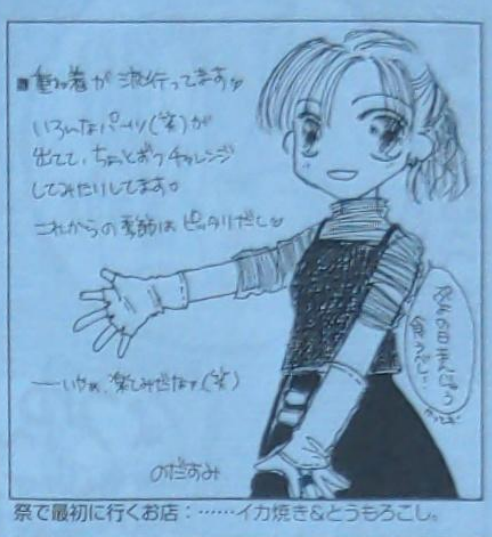 ■重ね着が流行ってます♡
いろんなパーツ(笑)が
出てて、ちょっとずつチャレンジ
してみたりしてます。
これからの季節は ピッタリだし♡
——いやぁ、楽しみだなァ(笑)
のだすみ
祭で最初に行くお店：……イカ焼き&とうもろこし。